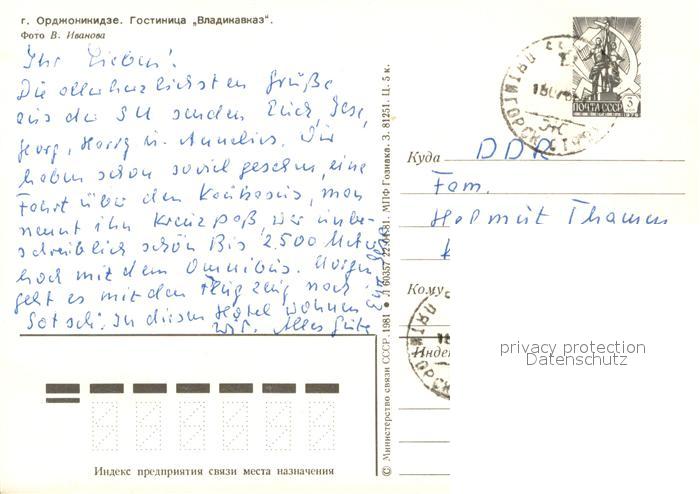 г. Орджоникидзе. Гостиница „Владикавказ".
Фото В. Иванова
Ihr Lieben!
Die allerherzlichsten Grüße
aus der SU senden Euch,
Georg, Harry u. Annelies. Wir
haben schon soviel gesehen, eine
Fahrt über den Kaukasus, man
nennt ihn Kreuzpaß, war unbe-
schreiblich schön Bis 2.500 Meter
hoch mit dem Omnibus. Morgen
geht es mit dem Flugzeug nach
Sotschi. In diesem Hotel wohnen
wir. Alles Gute
© Министерство связи СССР. 1981 ● Л 60357 22.01.81. МПФ Гознака. З. 81251. Ц. 5 к.
ПОЧТА СССР
ПЯТИГОРСК
Куда DDR
Fam.
Helmut Thamm
Кому
Индек
privacy protection
Datenschutz
Индекс предприятия связи места назначения